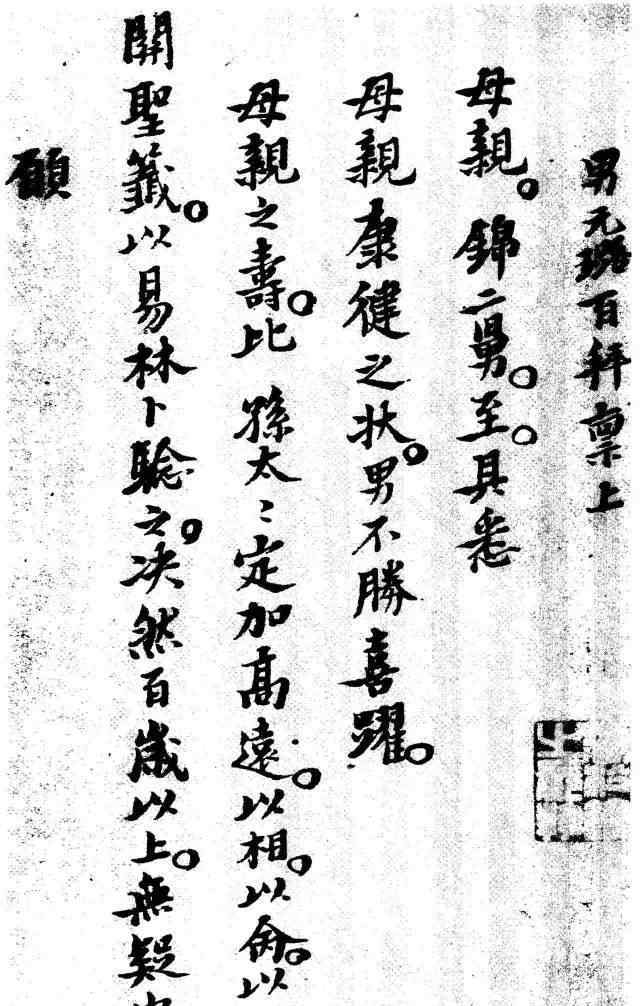 男元璐百拜稟上
母親。錦二舅。至。具悉
母親康健之狀。男不勝喜躍。
母親之壽。比孫太〻定加高遠。以相。以侖。以
關聖籤。以易林卜驗之。决然百歲以上。無疑
願